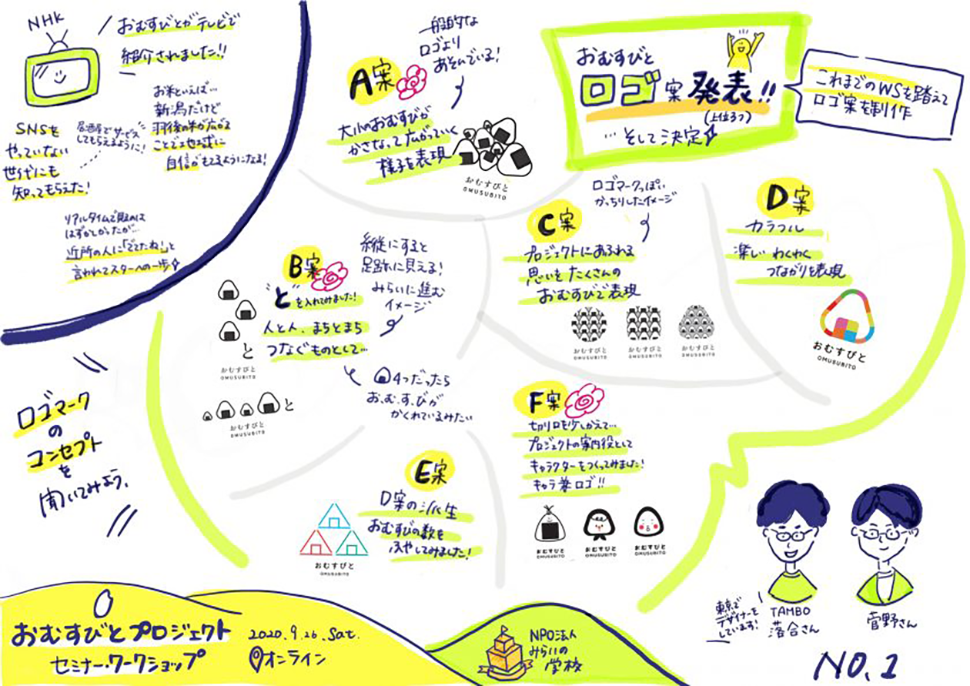 NHK
おむすびとがテレビで
紹介されました!!
お米といえば…
新潟だけど
羽後の米が広がる
自信がもてるようになる!
SNSを
やっていない
世代にも
知ってもらえた!
居酒屋でサービス
してもらえるように!
リアルタイムで見るのは
はずかしかったが…
近所の人に「でてたね!」と
言われてスターへの一歩
A案
一般的な
ロゴより
あそんでいる!
大小のおむすびが
かさなって広がっていく
様子を表現
おむすびと
OMUSUBITO
おむすびと
ロゴ案発表!!
(上位3つ)
…そして決定
これまでのWSを踏えて
ロゴ案を制作
B案
"と"を入れてみました!
人と人、まちとまち
つなぐものとして…
縦にすると
足跡に見える!
みらいに進む
イメージ
と
おむすびと
OMUSUBITO
と
おむすびと
OMUSUBITO
4つだったら
お.む.す.びが
かくれているみたい
C案
ロゴマークっぽい
かっちりしたイメージ
プロジェクトにあふれる
思いをたくさんの
おむすびで表現
おむすびと
OMUSUBITO
おむすびと
OMUSUBITO
おむすびと
OMUSUBITO
D案
カラフル
楽しい わくわく
つながりを表現
おむすびと
OMUSUBITO
E案
D案の派生
おむすびの数を
ふやしてみました!
おむすびと
OMUSUBITO
F案
切り口を少しかえて…
プロジェクトの案内役として
キャラクターをつくってみました!
キャラ兼ロゴ!!
おむすびと
OMUSUBITO
おむすびと
OMUSUBITO
おむすびと
OMUSUBITO
ロゴマーク
の
コンセプト
を
聞いてみよう、
東京で
デザイナーを
しています!
TAMBO
落合さん
菅野さん
おむすびとプロジェクト
セミナー・ワークショップ
2020.9.26.Sat.
オンライン
NPO法人
みらいの
学校
NO.1